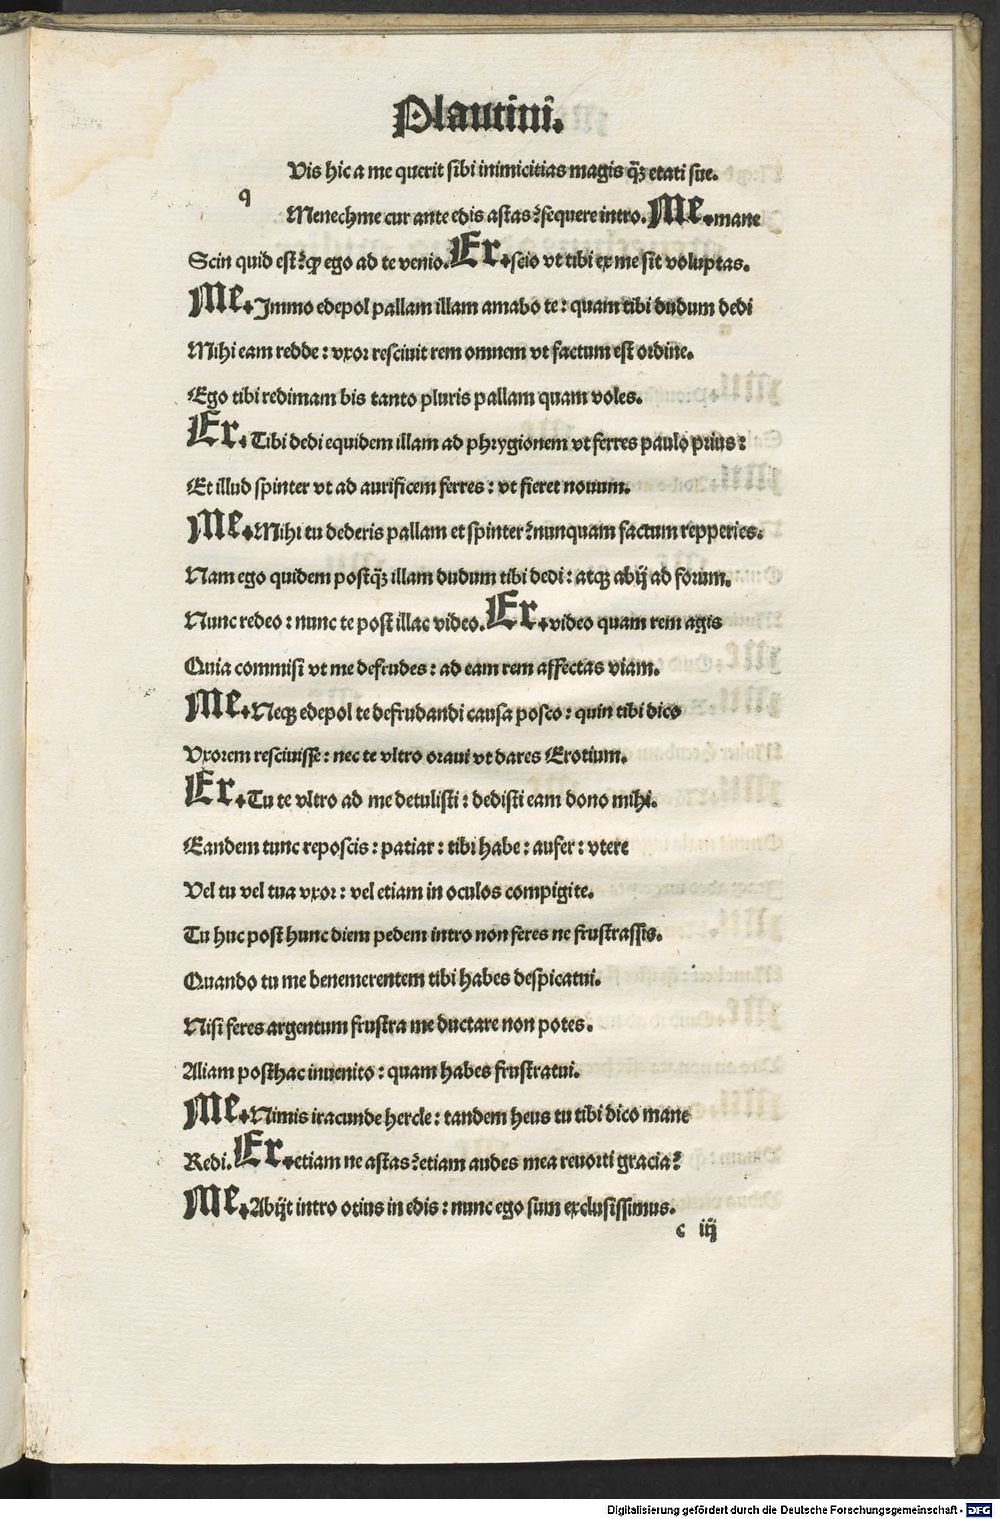 Plautini.
Vis hic a me querit sibi inimicitias magis q̃ꝫ etati sue.
q
Menechme cur ante edis astas? sequere intro. Me. mane
Scin quid est? ꝙ ego ad te venio. Er. scio vt tibi ex me sit voluptas.
Me. Immo edepol pallam illam amabo te: quam tibi dudum dedi
Mihi eam redde: vxor resciuit rem omnem vt factum est ordine.
Ego tibi redimam bis tanto pluris pallam quam voles.
Er. Tibi dedi equidem illam ad phrygionem vt ferres paulo prius:
Et illud spinter vt ad aurificem ferres: vt fieret nouum.
Me. Mihi tu dederis pallam et spinter? nunquam factum repperies.
Nam ego quidem postq̃ꝫ illam dudum tibi dedi: atqꝫ abij ad forum.
Nunc redeo: nunc te post illac video. Er. video quam rem agis
Quia commisi vt me defrudes: ad eam rem affectas viam.
Me. Neqꝫ edepol te defrudandi causa posco: quin tibi dico
Vxorem resciuisse: nec te vltro oraui vt dares Erotium.
Er. Tu te vltro ad me detulisti: dedisti eam dono mihi.
Eandem tunc reposcis: patiar: tibi habe: aufer: vtere
Vel tu vel tua vxor: vel etiam in oculos compigite.
Tu huc post hunc diem pedem intro non feres ne frustrassis.
Quando tu me benemerentem tibi habes despicatui.
Nisi feres argentum frustra me ductare non potes.
Aliam posthac inuenito: quam habes frustratui.
Me. Nimis iracunde hercle: tandem heus tu tibi dico mane
Redi. Er. etiam ne astas? etiam audes mea reuorti gracia?
Me. Abijt intro otius in edis: nunc ego sum exclusissimus.
c iij
Digitalisierung gefördert durch die Deutsche Forschungsgemeinschaft - DFG